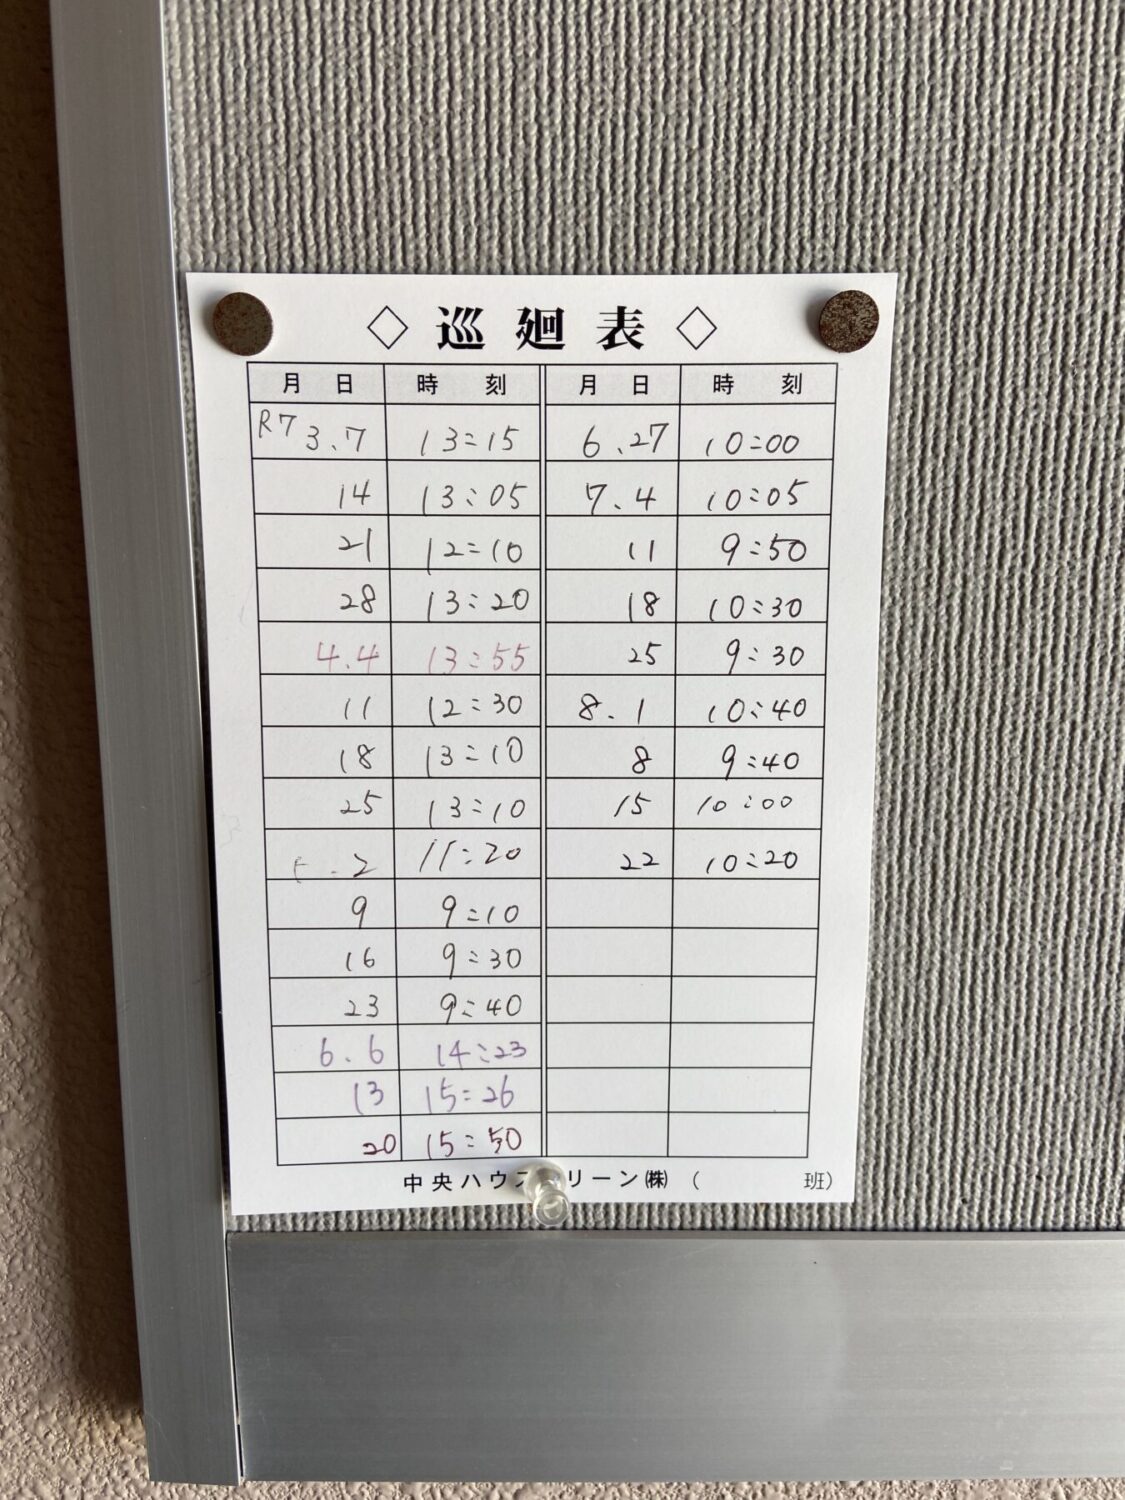 ◇ 巡廻表 ◇
月 日 時 刻 月 日 時 刻
R7 3.7 13:15 6.27 10:00
14 13:05 7.4 10:05
21 12:10 11 9:50
28 13:20 18 10:30
4.4 13:55 25 9:30
11 12:30 8.1 10:40
18 13:10 8 9:40
25 13:10 15 10:00
5.2 11:20 22 10:20
9 9:10
16 9:30
23 9:40
6.6 14:23
13 15:26
20 15:50
中央ハウスクリーン㈱ ( 班)